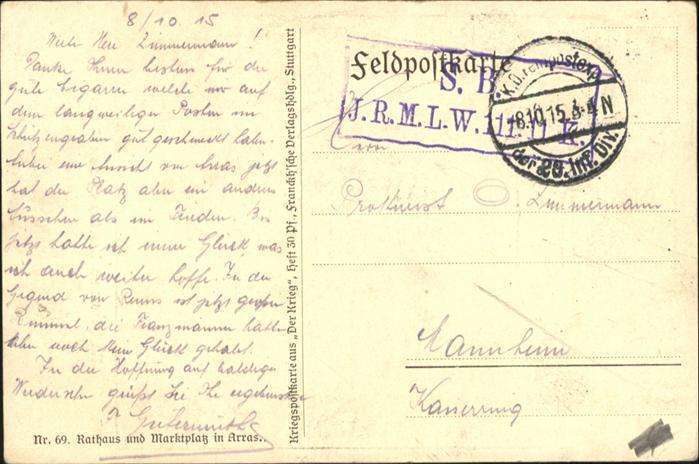 8/10.15
Werter Herr Zimmermann!
Danke Ihnen bestens für die
gute Cigarren welche wir auf
dem langweiligen Posten im
Schützengraben gut geschmeckt haben.
eine Ansicht von Arras jetzt
hat der Platz aber ein anderes
als im Frieden. Bis
jetzt hatte ich immer Glück, was
ich auch weiter hoffe. In der
Gegend von Reims ist jetzt großer
Rummel, die Franzmänner hatten
aber noch kein Glück gehabt.
In der Hoffnung auf baldiges
Wiedersehn grüßt Sie Ihr ergebenster
Nr. 69. Rathaus und Marktplatz in Arras.
Kriegspostkarte aus „Der Krieg“, Heft 30 Pf., Franckh'sche Verlagshdlg., Stuttgart
Feldpostkarte
S. B.
J. R. M. L. W. 111. K.
K. D. Feldpostexp.
8.10.15. 3-4 N
der 28. Inf. Div.
Herrn
Prokurist O. Zimmermann
Mannheim
Kaiserring